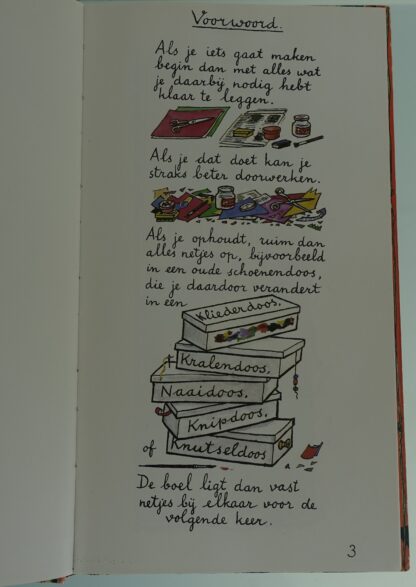 Voorwoord.
Als je iets gaat maken
begin dan met alles wat
je daarbij nodig hebt
klaar te leggen.
Als je dat doet kan je
straks beter doorwerken.
Als je ophoudt, ruim dan
alles netjes op, bijvoorbeeld
in een oude schoenendoos,
die je daardoor verandert
in een
Kliederdoos,
Kralendoos,
Naaidoos,
Knipdoos,
of Knutseldoos
De boel ligt dan vast
netjes bij elkaar voor de
volgende keer.
3